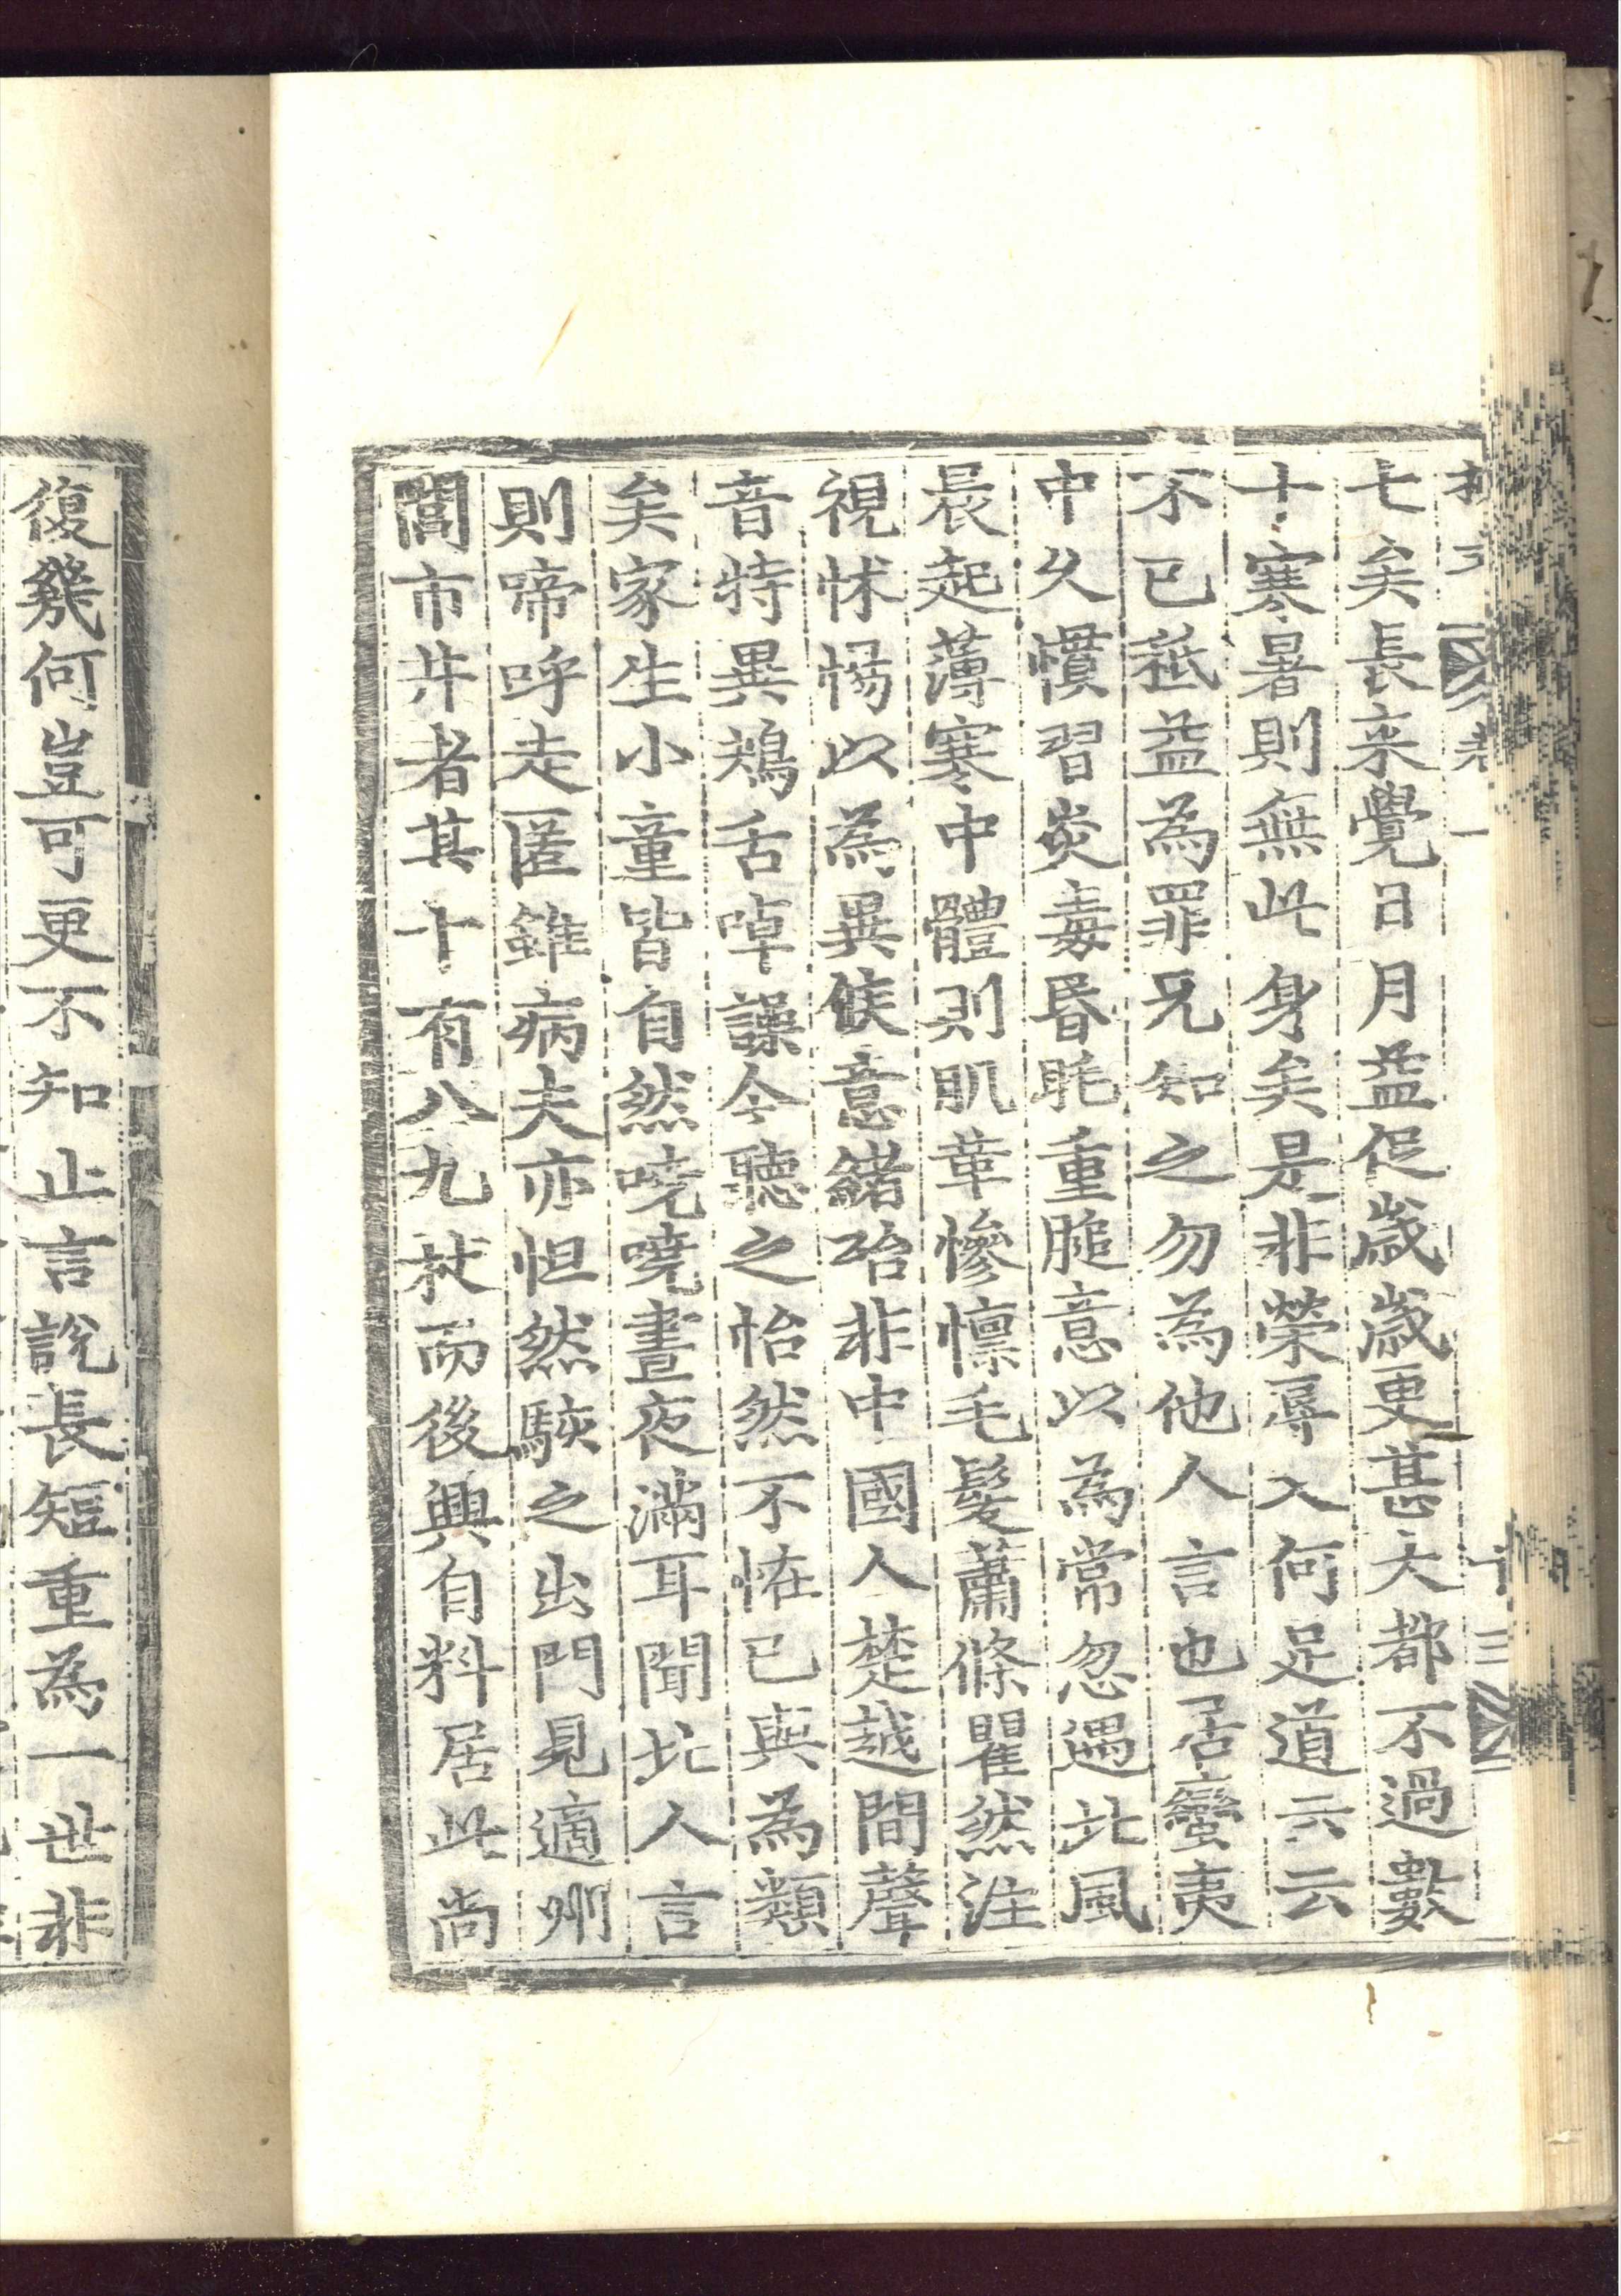 七矣長来覺日月益促歲歲更甚大都不過數
十寒暑則無此身矣是非榮辱又何足道云云
不已秪益為罪兄知之勿為他人言也居蠻夷
中久慣習炎毒昬眊重膇意以為常忽遇北風
晨起薄寒中體則肌革慘懍毛髮蕭條瞿然注
視怵惕以為異候意緒殆非中國人楚越間聲
音特異鴂舌啅譟今聽之怡然不恠已與為類
矣家生小童皆自然嘵嘵晝夜滿耳聞北人言
則啼呼走匿雖病夫亦怛然駭之出門見適州
閭市井者其十有八九杖而後興自料居此尚
復幾何豈可更不知止言說長短重為一世非